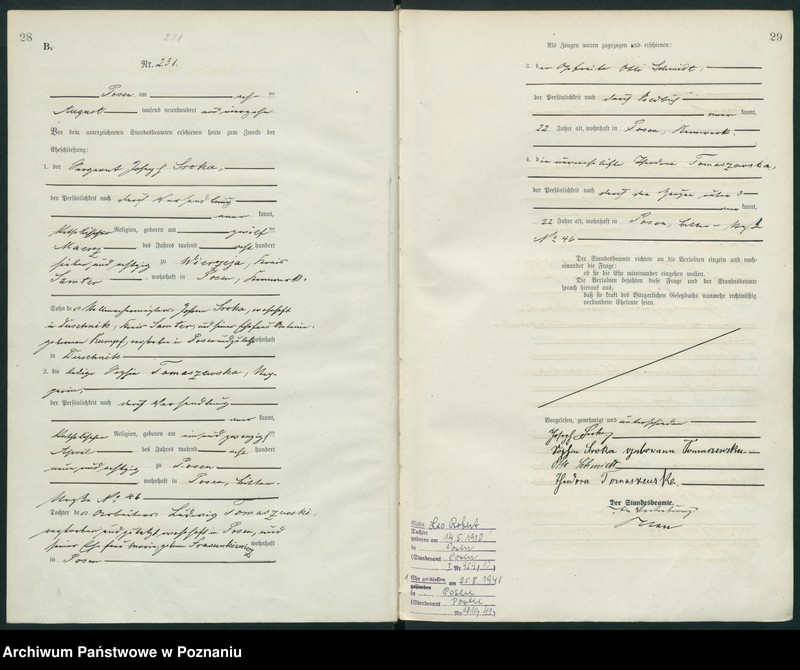 28
231
B.
Nr. 231.
Posen am acht ten
August tausend neunhundert und vierzehn
Vor dem unterzeichneten Standesbeamten erschienen heute zum Zwecke der
Eheschließung:
1. der Sergeant Joseph Sroka,
der Persönlichkeit nach durch Verhandlung
aner kannt,
katholischer Religion, geboren am zwölf ten
Maerz des Jahres tausend acht hundert
sieben und achtzig zu Wierzeja, Kreis
Samter, wohnhaft in Posen, Kernwerk.
Sohn des Stellmachermeisters Johann Sroka, wohnhaft
in Duschnik, Kreis Samter, und seiner Ehefrau
geborenen Kumpf, verstorben in Posen und zuletzt wohnhaft
in Duschnik
2. die ledige Sophie Tomaszewska,
der Persönlichkeit nach durch Verhandlung
aner kannt,
katholischer Religion, geboren am ein und zwanzig ten
April des Jahres tausend acht hundert
neun und achtzig zu Posen
, wohnhaft in Posen, Bitter-
straße No 46
Tochter des Arbeiters Ludwig Tomaszewski,
verstorben und zuletzt wohnhaft in Posen, und
seiner Ehefrau Marie, geborenen wohnhaft
in Posen
29
Als Zeugen waren zugezogen und erschienen:
3. der Gefreite Otto Schmidt,
der Persönlichkeit nach durch Soldbuch
aner kannt,
22 Jahre alt, wohnhaft in Posen, Kernwerk.
4. die unverehelichte Theodora Tomaszewska,
der Persönlichkeit nach durch den Zeugen unter 3
aner kannt,
22 Jahre alt, wohnhaft in Posen, Bitter- straße
No 46
Der Standesbeamte richtete an die Verlobten einzeln und nach-
einander die Frage:
ob sie die Ehe miteinander eingehen wollen.
Die Verlobten bejahten diese Frage und der Standesbeamte
sprach hierauf aus,
daß sie kraft des Bürgerlichen Gesetzbuchs nunmehr rechtmäßig
verbundene Eheleute seien.
Vorgelesen, genehmigt und unterschrieben
Joseph Sroka
Sophia Sroka geborene Tomaszewska
Otto Schmidt
Theodora Tomaszewska.
Der Standesbeamte.
In Vertretung
Sohn Leo Robert
Tochter
geboren am 14.5.1918
in Posen
(Standesamt Posen
I Nr.
Ehe geschlossen am 25.8.1941
in Posen
(Standesamt Posen
Nr.
Archiwum Państwowe w Poznaniu